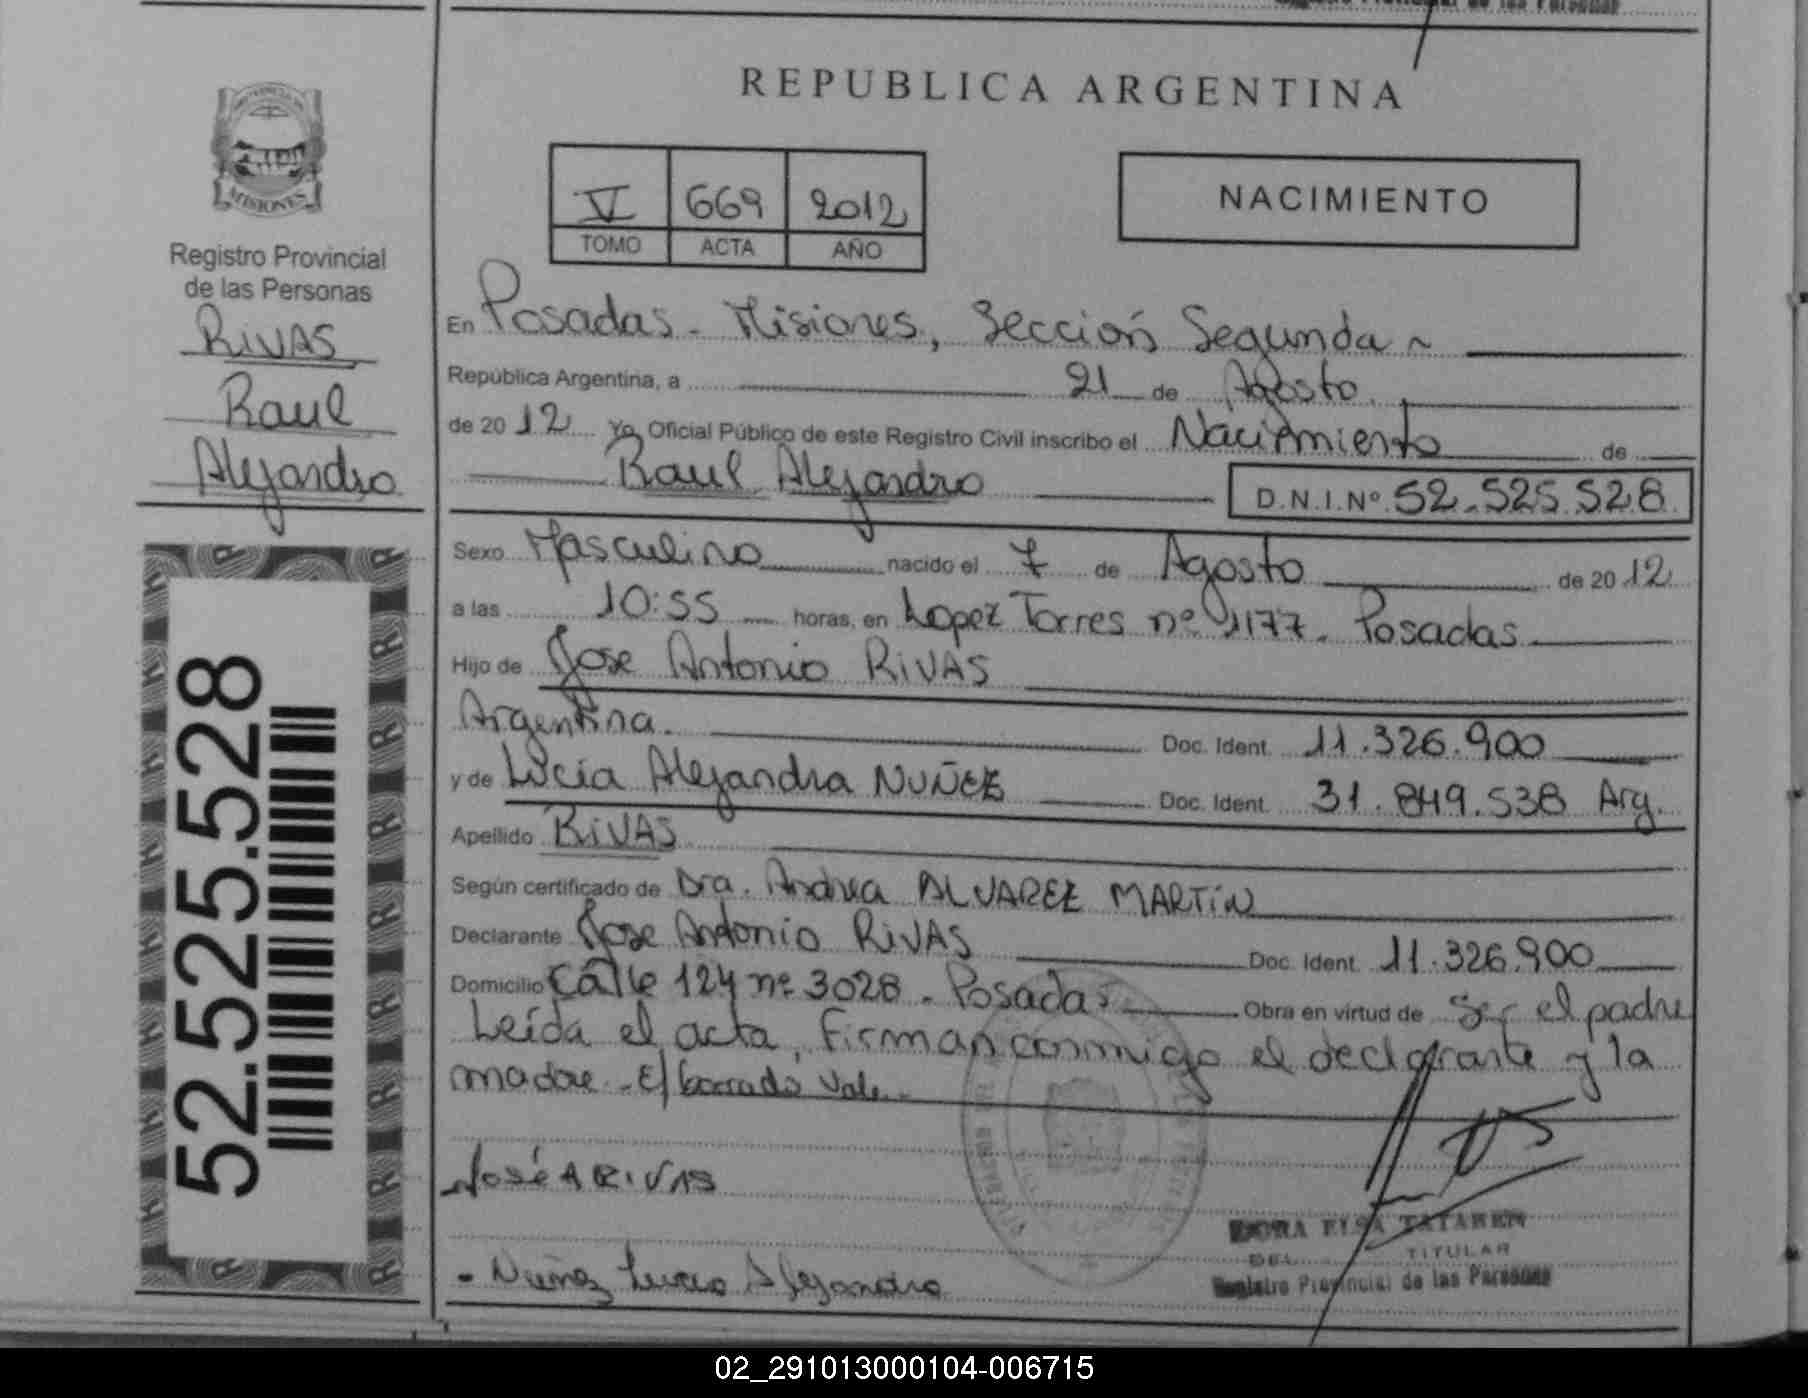 Registro Provincial de las Personas
REPUBLICA ARGENTINA
MISIONES
Registro Provincial
de las Personas
RIVAS
Raul
Alejandro
52.525.528
V 669 2012
TOMO ACTA AÑO
NACIMIENTO
En Posadas - Misiones, Sección Segunda
República Argentina, a 21 de Agosto
de 2012 Yo, Oficial Público de este Registro Civil inscribo el Nacimiento de
Raul Alejandro D.N.I.Nº 52.525.528
Sexo Masculino nacido el 7 de Agosto de 2012
a las 10:55 horas, en Lopez Torres nº 1177. Posadas
Hijo de Jose Antonio RIVAS
Argentina. Doc. Ident. 11.326.900
y de Lucia Alejandra NUÑEZ Doc. Ident. 31.849.538 Arg.
Apellido RIVAS
Según certificado de Dra. Andrea ALVAREZ MARTIN
Declarante Jose Antonio RIVAS Doc. Ident. 11.326.900
Domicilio Calle 124 nº 3028 - Posadas Obra en virtud de Ser el padre
Leída el acta, firman conmigo el declarante y la
madre - E/ borrado Vale.-
José A RIVAS
DORA ELSA TATAREN
DEL TITULAR
Registro Provincial de las Personas
- Nuñez Lucia Alejandra
02_291013000104-006715